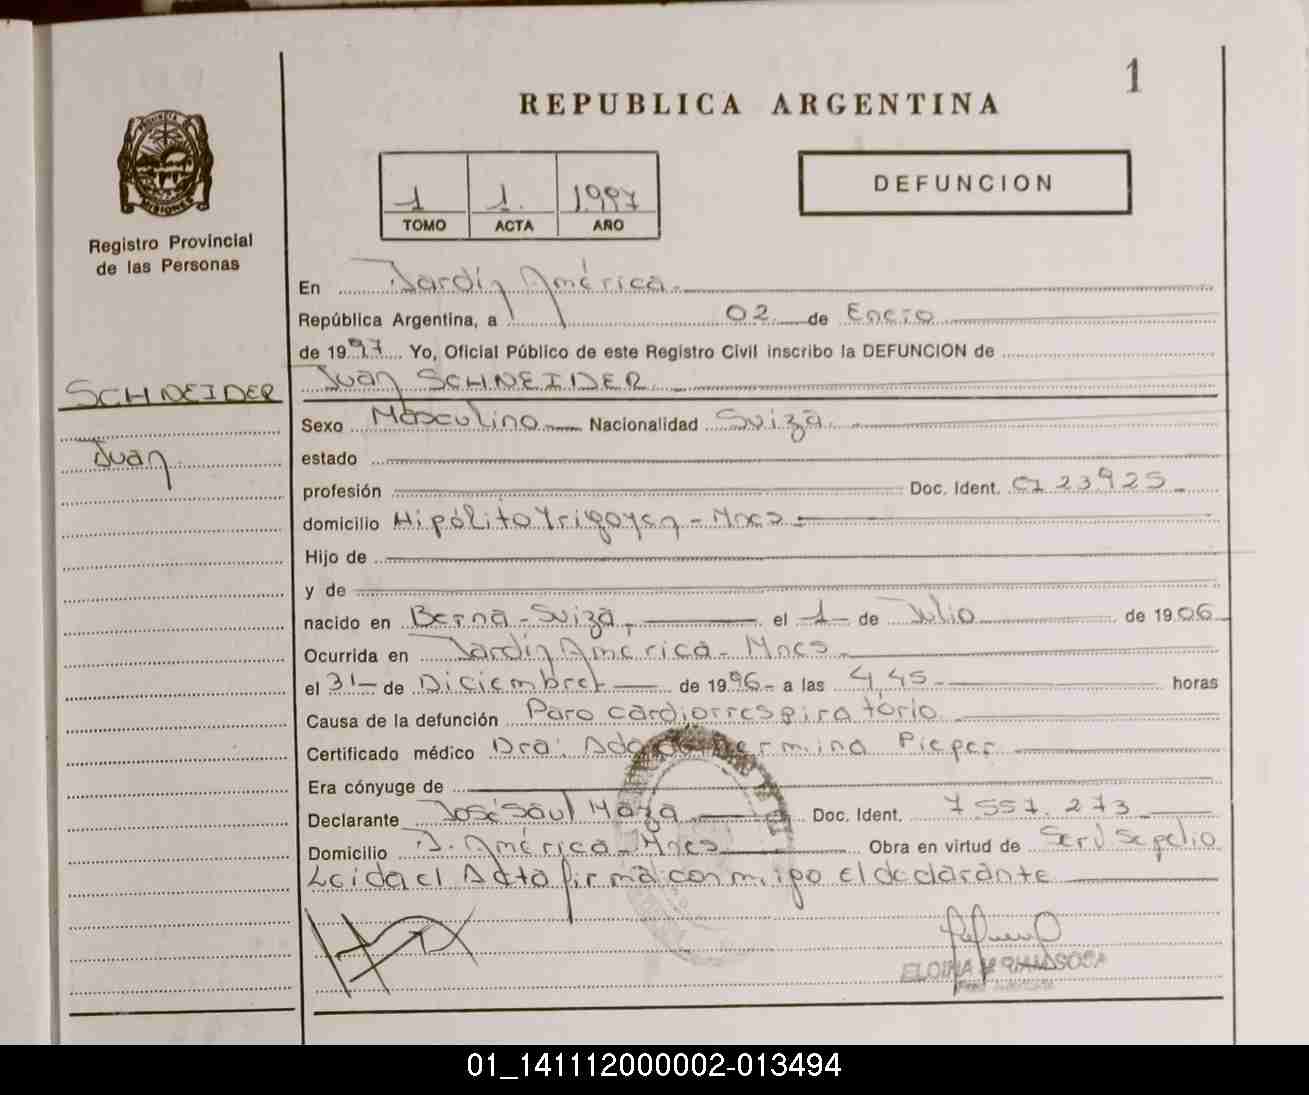 1
REPUBLICA ARGENTINA
PROVINCIA DE
MISIONES
Registro Provincial
de las Personas
1 1. 1997
TOMO ACTA AÑO
DEFUNCION
En Jardín América.
República Argentina, a 02 de Enero
de 1997 Yo, Oficial Público de este Registro Civil inscribo la DEFUNCION de
Juan SCHNEIDER
SCHNEIDER
Juan
Sexo Masculino Nacionalidad Suiza
estado
profesión Doc. Ident. CI 23925
domicilio Hipólito Yrigoyen - Mnes
Hijo de
y de
nacido en Berna - Suiza, el 1 de Julio de 1906
Ocurrida en Jardín América - Mnes
el 31 de Diciembre de 1996 a las 4,45 horas
Causa de la defunción Paro cardiorrespiratório
Certificado médico Dra: Pieper
Era cónyuge de
Declarante José Saul Maza Doc. Ident. 7.557.273
Domicilio J. América - Mnes Obra en virtud de Serv Sepelio
Leida el Acta firma conmigo el declarante
ELOINA SOSA
01_141112000002-013494